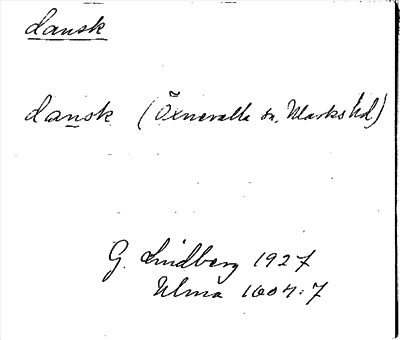 dansk
dansk (Öxnevalla sn, Marks hd)
G. Lindberg 1927
Ulma 1607:7